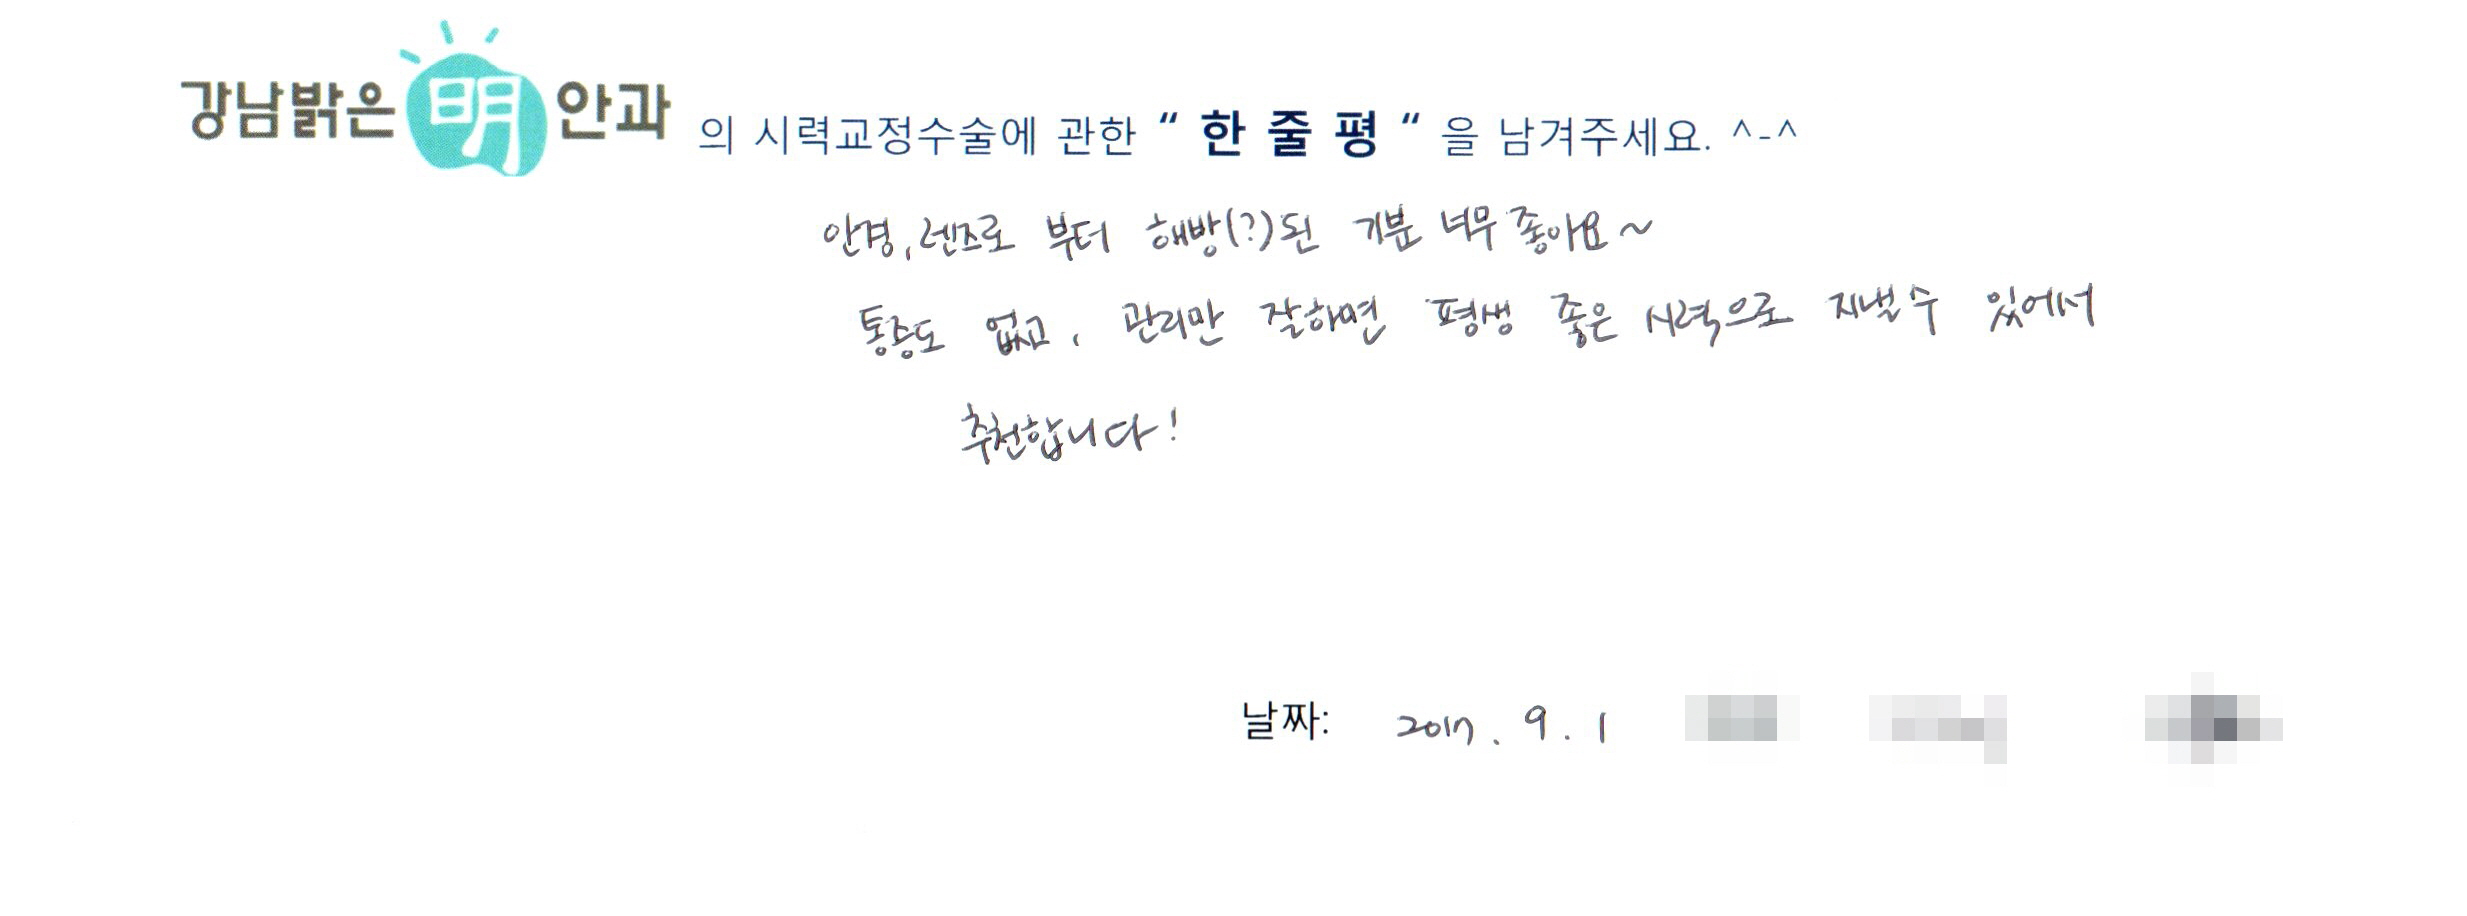 강남밝은 明 안과 의 시력교정수술에 관한 “ 한 줄 평 “ 을 남겨주세요. ^-^
안경, 렌즈로 부터 해방(?)된 기분 너무 좋아요~
통증도 없고, 관리만 잘하면 평생 좋은 시력으로 지낼 수 있어서
추천합니다!
날짜: 2017. 9. 1